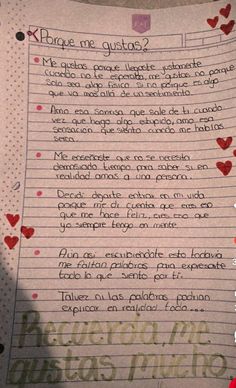 Porque me gustas?
Me gustas porque llegaste justamente
cuando no te esperaba, me gustas no porque
solo sea algo físico si no porque es algo
que va mas allá de un sentimiento.
Amo esa sonrisa que sale de ti cuando
vez que hago algo estupido, amo esa
sensacion que siento cuando me hablas
seria.
Me enseñaste que no se necesita
demasiado tiempo para saber si en
realidad amas a una persona.
Decidi dejarte entrar en mi vida
porque me di cuenta que eres eso
que me hace feliz, eres eso que
yo siempre tengo en mente
Aun asi escribiendote esto todavia
me faltan palabras para expresarte
todo lo que siento por ti.
Talvez ni las palabras podrian
explicar en realidad todo...
Recuerda, me
gustas mucho